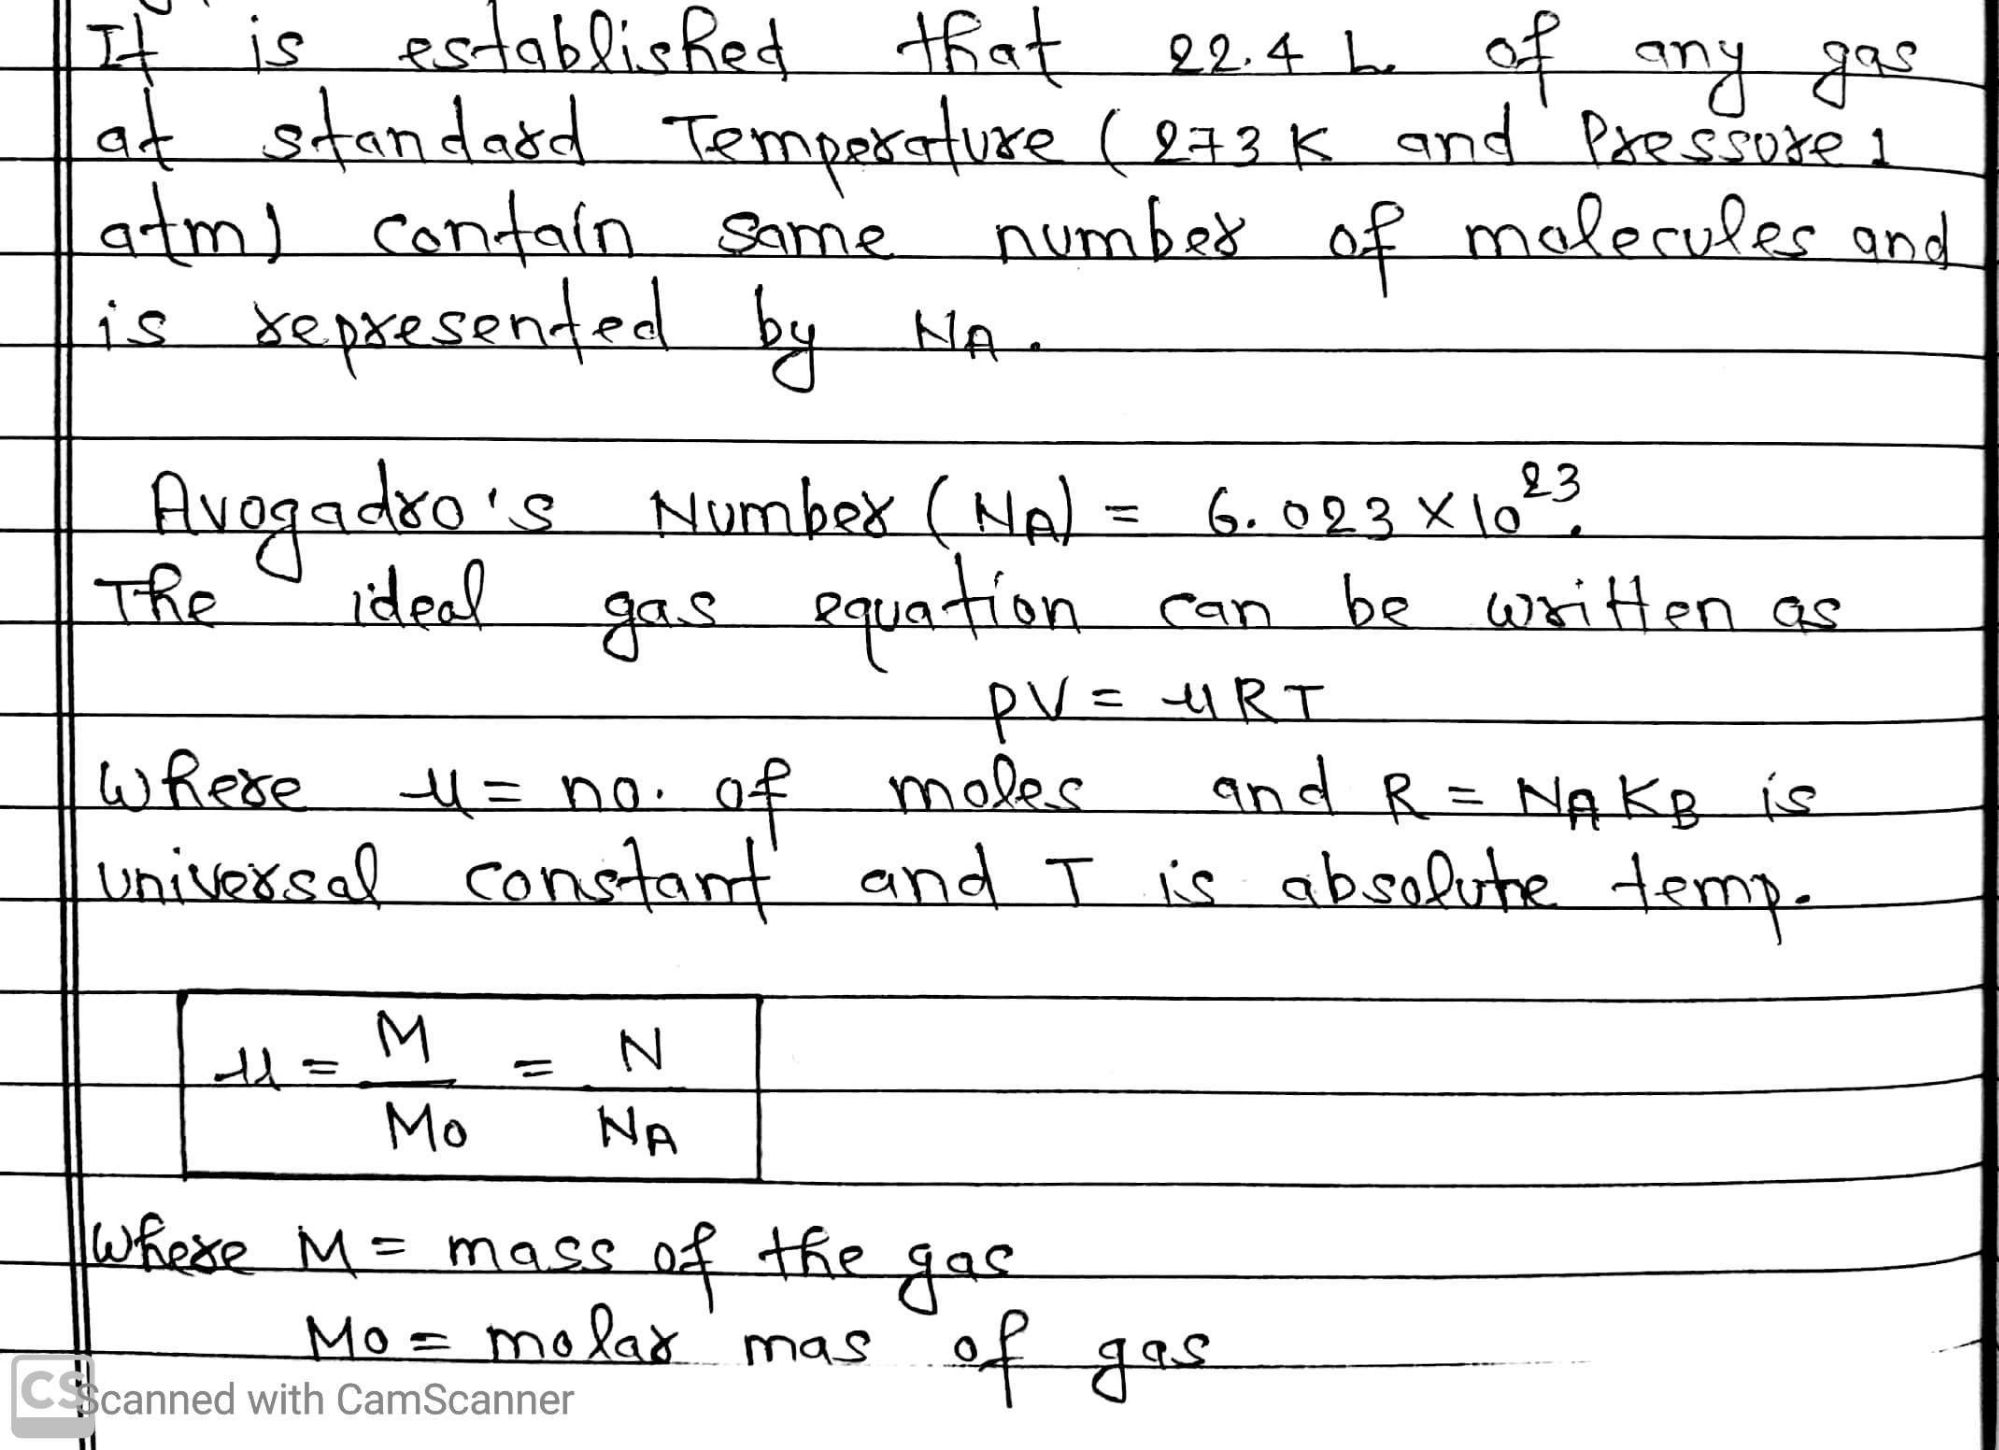 It is established that 22.4 L of any gas
at standard Temperature (273 K and Pressure 1
atm) contain same number of molecules and
is represented by NA.
Avogadro's Number (NA) = 6.023 × 10²³.
The ideal gas equation can be written as
PV = μRT
Where μ = no. of moles and R = NA KB is
universal constant and T is absolute temp.
μ = M/Mo = N/NA
Where M = mass of the gas
Mo = molar mas of gas
CS Scanned with CamScanner